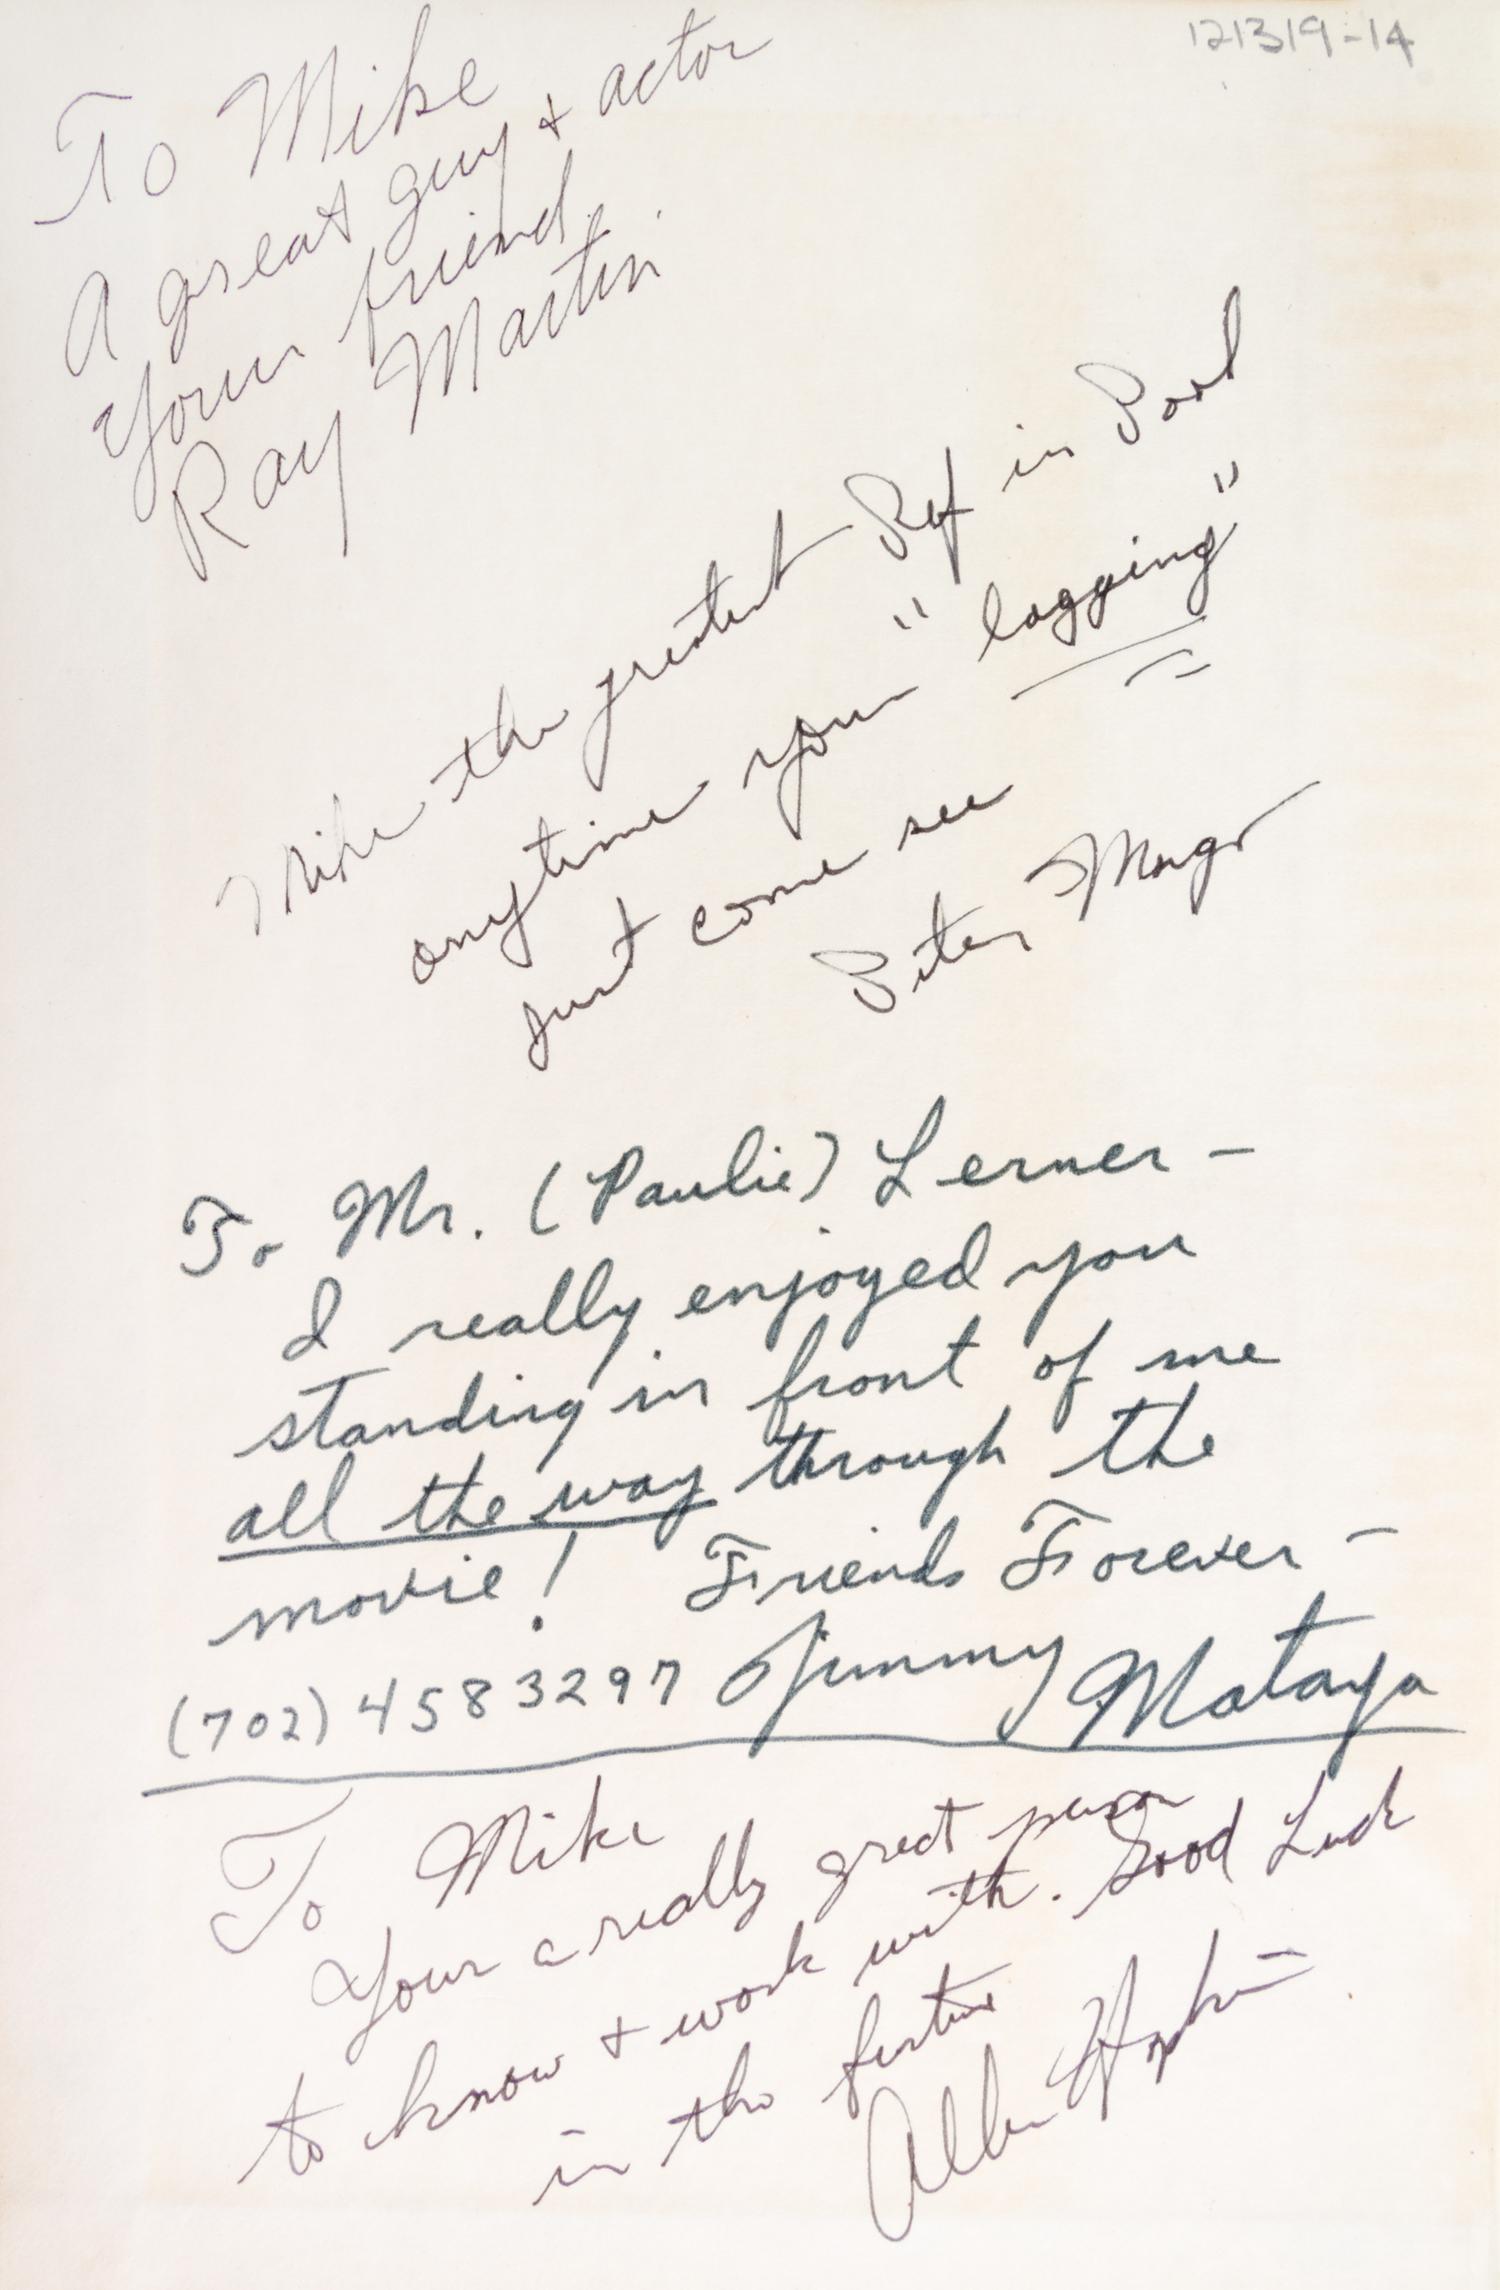 121319-14
To Mike
A great guy + actor
Your friend
Ray Martin
Mike the greatest Ref in Pool
anytime your "lagging"
just come see
Peter Margo
To Mr. (Paulie) Lerner -
I really enjoyed you
standing in front of me
all the way through the
movie! Friends Forever -
(702) 4583297 Jimmy Mataya
To Mike
Your a really great person
to know + work with. Good Luck
in the future
Allen Hopkins